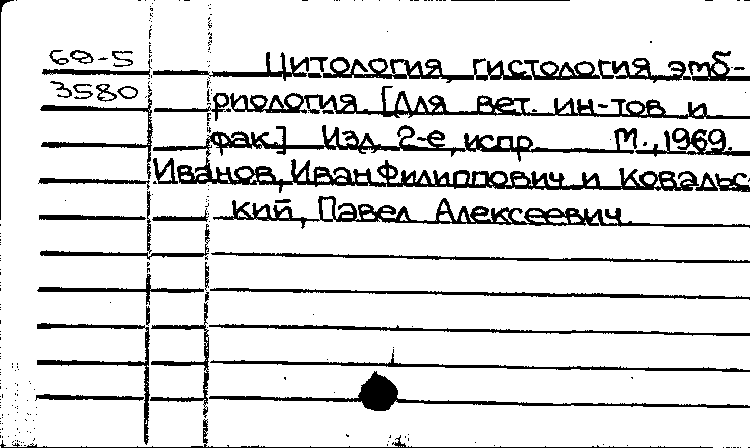 69-5 Цитология, гистология, эмб-
3580 риология. [Для вет. ин-тов и
фак.] Изд. 2-е, испр. М., 1969.
Иванов, Иван Филиппович и Ковальс-
кий, Павел Алексеевич.